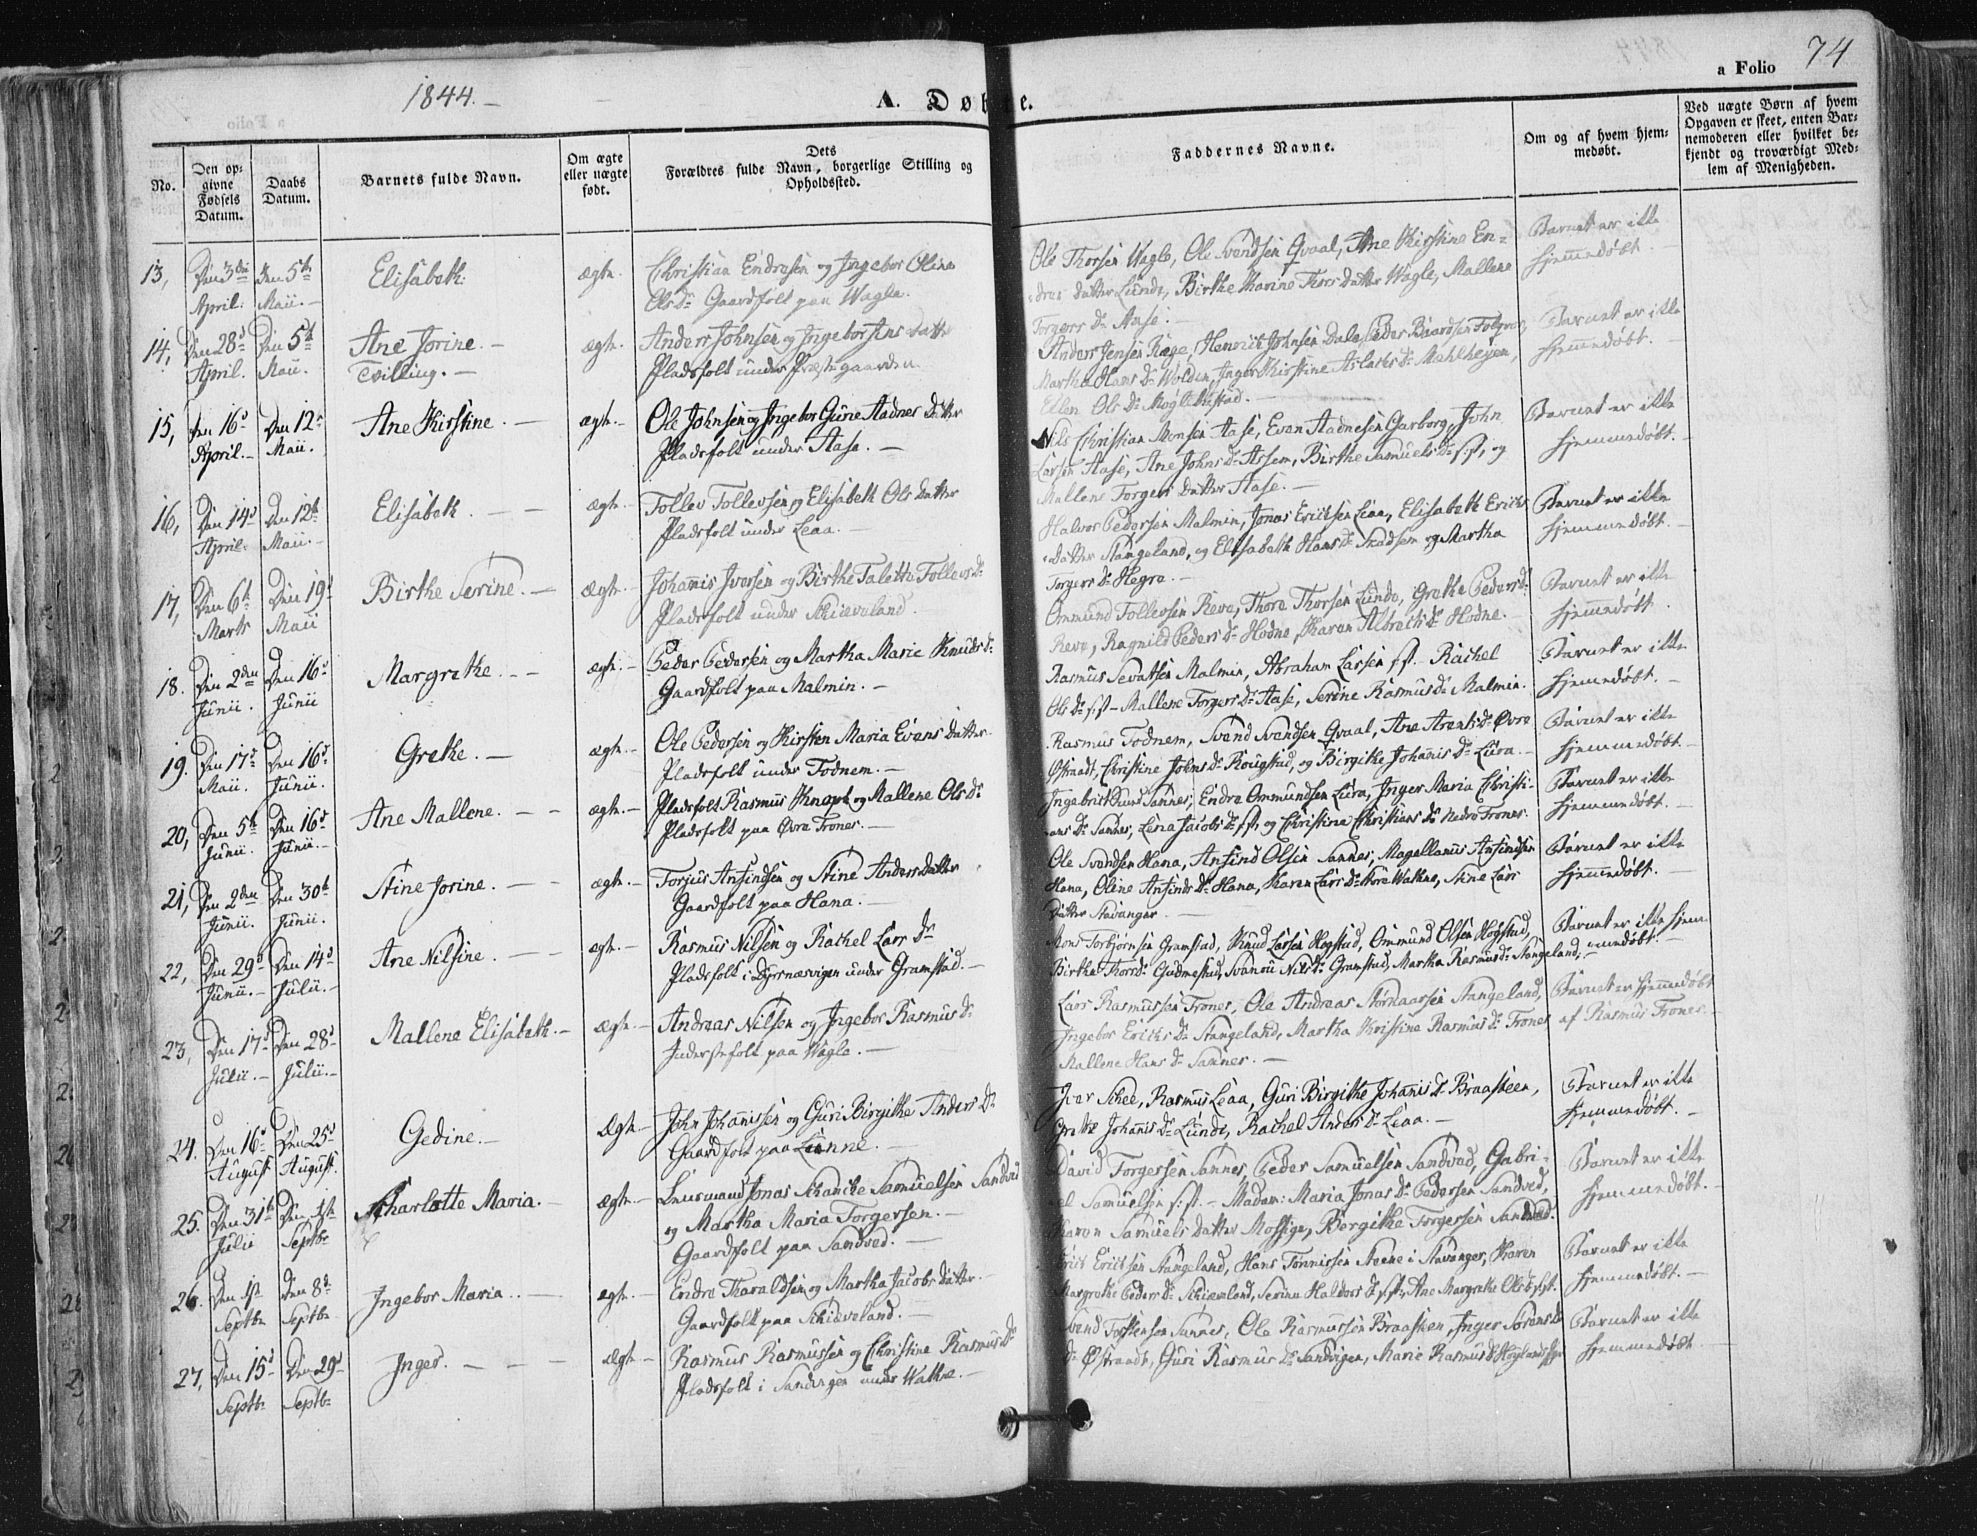 1844.
A. Døbte.
a Folio 74
No.
Den op-
givne
Fødsels
Datum.
Daabs
Datum.
Barnets fulde Navn.
Om ægte
eller uægte
født.
Dets
Forældres fulde Navn, borgerlige Stilling og
Opholdssted.
Faddernes Navne.
Om og af hvem hjem-
medøbt.
Ved uægte Børn af hvem
Opgaven er skeet, enten Bar-
nemoderen eller hvilket be-
kjendt og troværdigt Med-
lem af Menigheden.
13, Den 3die April. Den 5te Maii. Elisabeth. ægte.
Christian Endresen og Ingebor Oline
Ols Dr Gaardfolk paa Wagle.
Ole Thorsen Wagle, Ole Svendsen Qvaal, Ane Kirstine En-
dres Datter Lunde, Birthe Karine Thors Datter Wagle, Mallene
Torgers Dr Aase.
Barnet er ikke
hjemmedøbt.
14, Den 28d April. Den 5te Maii. Ane Jorine. Tvilling. ægte.
Anders Johnsen og Ingebor Jens Datter
Pladsfolk under Præstegaarden.
Anders Jensen Rage, Henrich Johnsen Dale, Peder Baardsen
Martha Hans Dr Wolden, Inger Kirstine Aslaks Dr
Ellen Ols Dr
Barnet er ikke
hjemmedøbt.
15, Den 16d April. Den 12te Maii. Ane Kirstine. ægte.
Ole Johnsen og Ingebor Gurie Aadnes Datter
Pladsfolk under Aase.
Nils Christian Monsen Aase, Even Aadnesen Garborg, John
Larsen Aase, Ane Johns Dr Assem, Birthe Samuels Dr s:st, og
Mallene Torgers Datter Aase.
Barnet er ikke
hjemmedøbt.
16, Den 14d April. Den 12te Maii. Elisabeth. ægte.
Tollev Tollevsen og Elisabeth Ols Datter
Pladsfolk under Leaa.
Halvor Pedersen Malmin, Jonas Ericksen Leaa, Elisabeth Ericks
Datter Stangeland, og Elisabeth Hans Dr Skadsem og Martha
Torgers Dr Hegre.
Barnet er ikke
hjemmedøbt.
17, Den 6te Marts Den 19d Maii Birthe Serine. ægte.
Johannis Iversen og Birthe Taletta Tollevs Dr
Pladsfolk under Schieveland.
Ommund Tollevsen Reve, Thore Thorsen Lunde, Grethe Peders Dr
Reve, Ragnild Peders Dr Hodne, Karen Albrechts Dr Hodne.
Barnet er ikke
hjemmedøbt.
18. Den 2den Junii. Den 16d Junii Margrethe. ægte.
Peder Pedersen og Martha Marie Knuds Dr
Gaardfolk paa Malmin.
Rasmus Sevatsen Malmin, Abraham Larsen s:st. Rachel
Ols Dr s:st - Mallene Torgers Dr Aase, Serine Rasmus Dr Malmin.
Barnet er ikke
hjemmedøbt.
19. Den 17d Maii. Den 16d Junii. Grethe. ægte.
Ole Pedersen og Kirsten Maria Evens Datter
Pladsfolk under Todnem.
Rasmus Todnem, Svend Svendsen Qvaal, Ane Arents Dr Øvre
Østraadt, Christine Johns Dr Rougstad, og Birgithe Johannis Dr Lura.
Barnet er ikke
hjemmedøbt.
20, Den 5te Junii. Den 16d Junii. Ane Mallene. ægte.
Pladsfolk Rasmus Knapt og Mallene Ols Dr
Pladsfolk paa Øvre Trones.
Ingebrict Sannes, Endre Ommundsen Lura, Inger Maria Christi-
ans Dr Sannes, Lena Jacobs Dr s:st, og Christina Christians Dr Nedre Trones.
Barnet er ikke
hjemmedøbt.
21, Den 2den Junii. Den 30te Junii. Stine Jorine. ægte.
Torjus Ansindsen og Stine Anders Datter
Gaardfolk paa Hana.
Ole Svendsen Hana, Ansind Olsen Sannes, Magellanus Ansindsen
Hana, Oline Ansinds Dr Hana, Karen Lars Dr Store Watne, Stine Lars
Datter Stavanger.
Barnet er ikke
hjemmedøbt.
22, Den 29d Junii. Den 14d Julii. Ane Nilsine. ægte.
Rasmus Nilsen og Rachel Lars Dr
Pladsfolk i Dyrsnæsvigen under Gramstad.
Mons Torbjørnsen Gramstad, Knud Larsen Hogstad, Ommund Olsen Hogstad,
Birthe Thors Dr Gudmestad, Svanou Nils Dr Gramstad, Martha Rasmus Dr Stangeland,
Barnet er ikke hjem-
medøbt.
23, Den 17d Julii. Den 28d Julii. Mallene Elisabeth. ægte.
Andreas Nilsen og Ingebor Rasmus Dr
Inderstefolk paa Wagle.
Lars Rasmussen Trones, Ole Andreas Stangeland,
Ingebor Ericks Dr Stangeland, Martha Kristine Rasmus Dr Trones
Mallene Hans Dr Sannes.
Barnet er hjemmedøbt
af Rasmus Trones.
24. Den 16d August Den 25d August. Gedine. ægte.
John Johannissen og Guri Birgithe Anders Dr
Gaardfolk paa
Iver Schee, Rasmus Leaa, Guri Birgithe Johannis Dr Braasteen,
Grethe Johannis Dr Lunde, Rachel Anders Dr Leaa.
Barnet er ikke
hjemmedøbt.
25. Den 31te Julii Den 1ste Septbr Charlotte Maria. ægte.
Lensmand Jonas Schancke Samuelsen Sandved
og Martha Maria Torgersen.
Gaardfolk paa Sandved.
David Torgersen Sannes, Peder Samuelsen Sandved, Gabri-
el Samuelsen s:st. - Madam: Maria Jonas Dr Pedersen Sandved,
Karen Samuels Datter Mossige, Bergithe Torgersen Sandved.
Barnet er ikke
hjemmedøbt.
26. Den 1ste Septbr Den 8de Septbr Ingebor Maria. ægte.
Endre Tharaldsen og Martha Jacobs Datter
Gaardfolk paa Schieveland.
Erick Ericksen Stangeland, Hans Tønnissen Steene i Stavanger, Karen
Margrethe Peders Dr Schieveland, Serina Haldors Dr s:st, Ane Margrethe Ols Dr s:st.
Barnet er ikke
hjemmedøbt.
27, Den 15d Septbr Den 29d Septbr Inger. ægte.
Rasmus Rasmussen og Christine Rasmus Dr
Pladsfolk i Sandvigen under Watne.
Svend Torstensen Sannes, Ole Rasmussen Braasteen, Inger Sørens
Dr Østraadt, Guri Rasmus Dr Sandvigen, Marie Rasmus Dr
Barnet er ikke
hjemmedøbt